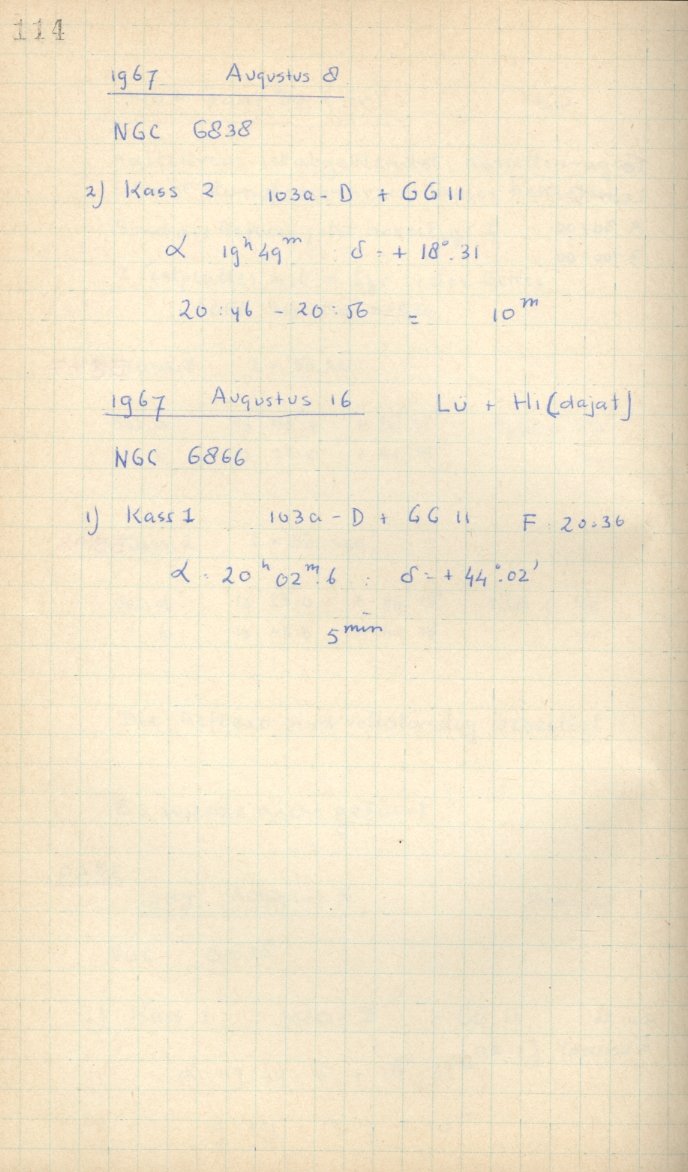 114
1967 Augustus 8
NGC 6838
2) Kass 2 103a-D + GG 11
α 19ʰ 49ᵐ δ = + 18°.31
20:46 - 20:56 = 10ᵐ
1967 Augustus 16 Lü + Hi(dajat)
NGC 6866
1) Kass 1 103a-D + GG 11 F 20.36
α = 20ʰ 02ᵐ.6 : δ = + 44°.02'
5 min